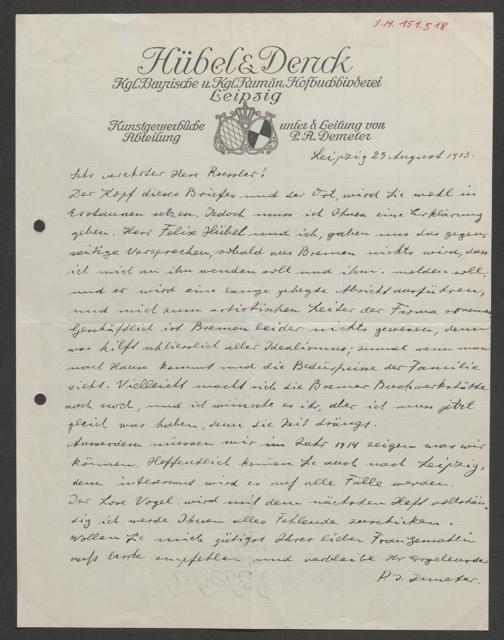 I.N. 151.518
Hübel & Denck
Kgl. Bayrische u. Kgl. Rumän. Hofbuchbinderei
Leipzig
Kunstgewerbliche Abteilung
unter d. Leitung von P. A. Demeter
Leipzig 29 August 1913.
Sehr verehrter Herr Roessler!
Der Kopf dieses Briefes und der Ort, wird Sie wohl in
Erstaunen setzen. Jedoch muss ich Ihnen eine Erklärung
geben. Herr Felix Hübel und ich, gaben uns das gegen-
seitige Versprechen, sobald aus Bremen nichts wird, dass
ich mich an ihn wenden soll und ihm melden soll,
und er wird eine lange gehegte Absicht ausführen,
und mich zum artistischen Leiter der Firma
Geschäftlich ist Bremen leider nichts gewesen, denn
was hilft schliesslich aller Idealismus; zumal wenn man
nach Hause kommt und die Bedürfnisse der Familie
sieht. Vielleicht macht sich die Bremer Buchwerkstätte
auch noch, und ich wünsche es ihr, aber ich muss jetzt
gleich was haben, denn die Zeit drängt.
Ausserdem müssen wir im Jahr 1914 zeigen was wir
können. Hoffentlich kommen Sie auch nach Leipzig,
denn interessant wird es auf alle Fälle werden.
Der Lose Vogel wird mit dem nächsten Heft vollstän-
dig ich werde Ihnen alles Fehlende zuschicken.
Wollen Sie mich gütigst Ihrer lieben Frau Gemahlin
aufs beste empfehlen und verbleibe Ihr Ergebenster
P. A. Demeter.